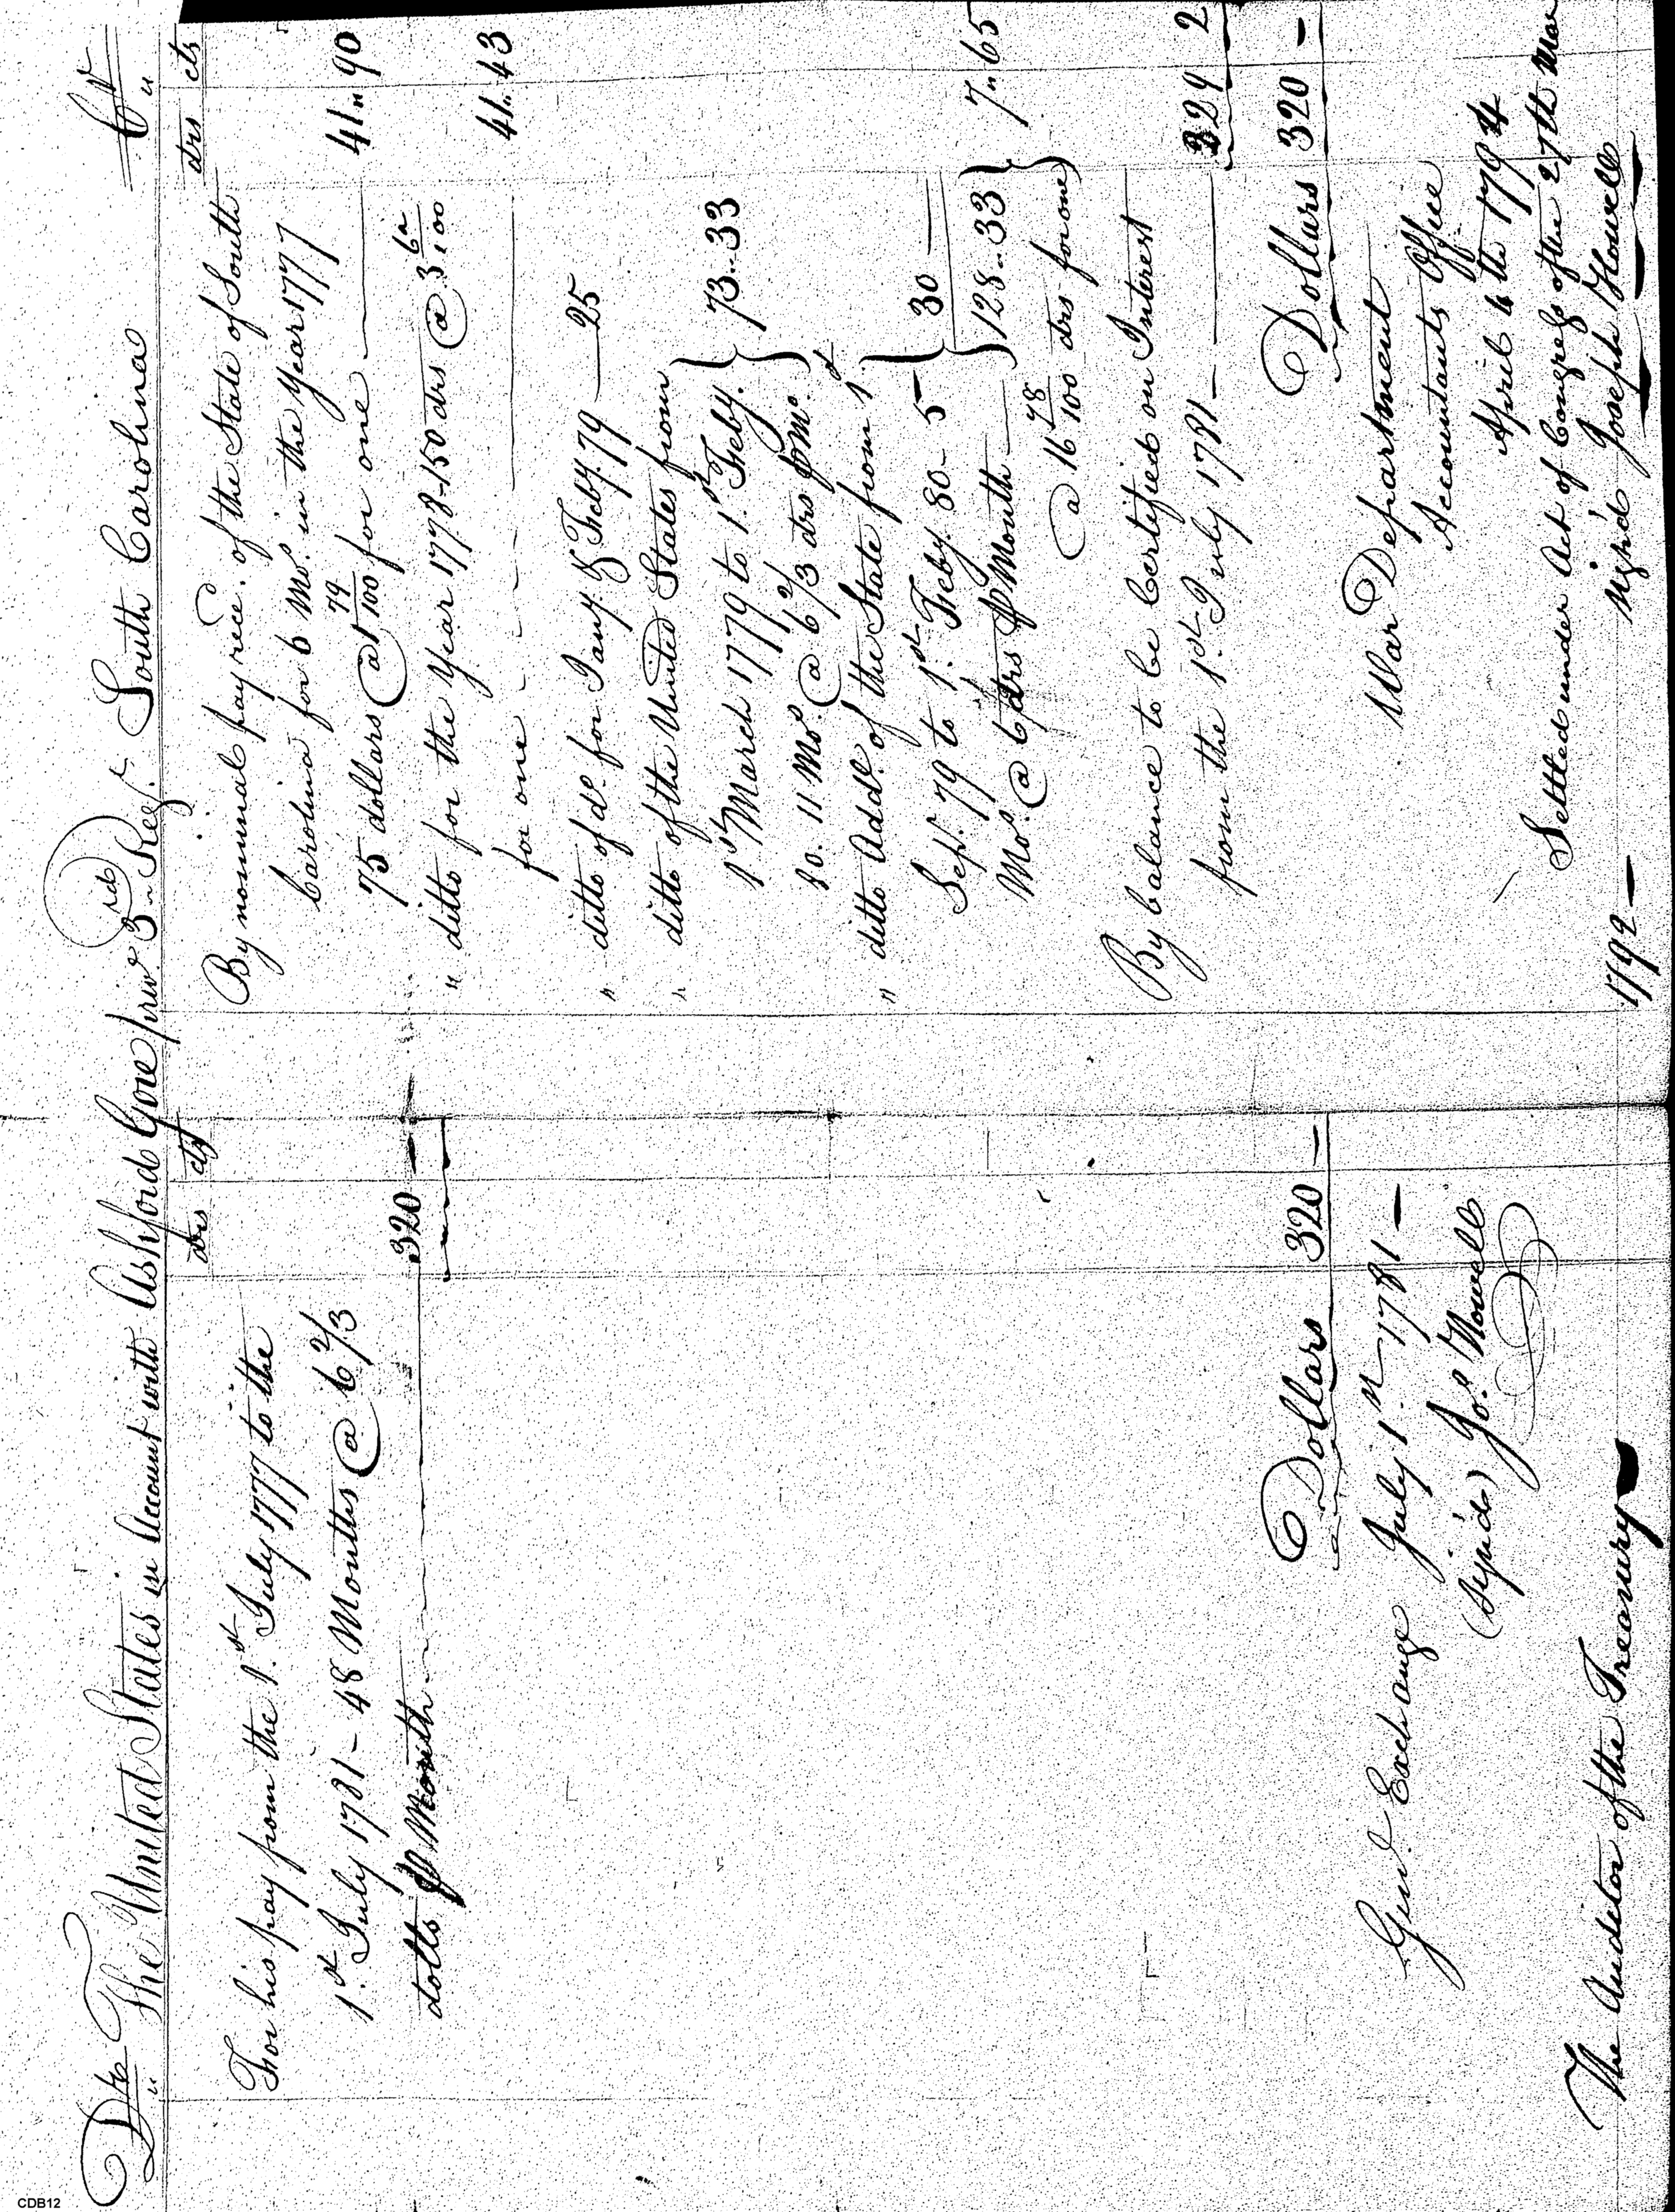 Dr The United States in Account with Ashford Gore priv.e 3rd Regt. South Carolina Cr
drs cts
For his pay from the 1st July 1777 to the
1st July 1781 - 48 Months @ 6 2/3
dolls p Month 320 —
Dollars 320 —
Genl. Exchange July 1st 1781 —
(Sign'd) Jos. Howell
The Auditor of the Treasury
drs cts
By nominal pay rece. of the State of South
Carolina for 6 Mos. in the Year 1777
75 dollars @ 1 79/100 for one 41.. 90
" ditto for the Year 1778 - 150 drs @ 3 62/100
for one 41.. 43
" ditto of do. for Jany. & Feby. 79 — 25
" ditto of the United States from
1st March 1779 to 1st Feby.
80. 11 Mos. @ 6 2/3 drs p Mo. } 73..33
" ditto Addl. of the State from 1st
Sept. 79 to 1st Feby. 80 - 5
Mos. @ 6 drs p Month } 30 —
128..33 } 7..65
@ 16 78/100 drs for one
By balance to be Certified on Interest
from the 1st July 1781 — 229 2
Dollars 320 —
War Department
Accountants Office
April 4th 1794
Settled under Act of Congress of the 27th Mar
1792 — sign'd Joseph Howell
CDB12